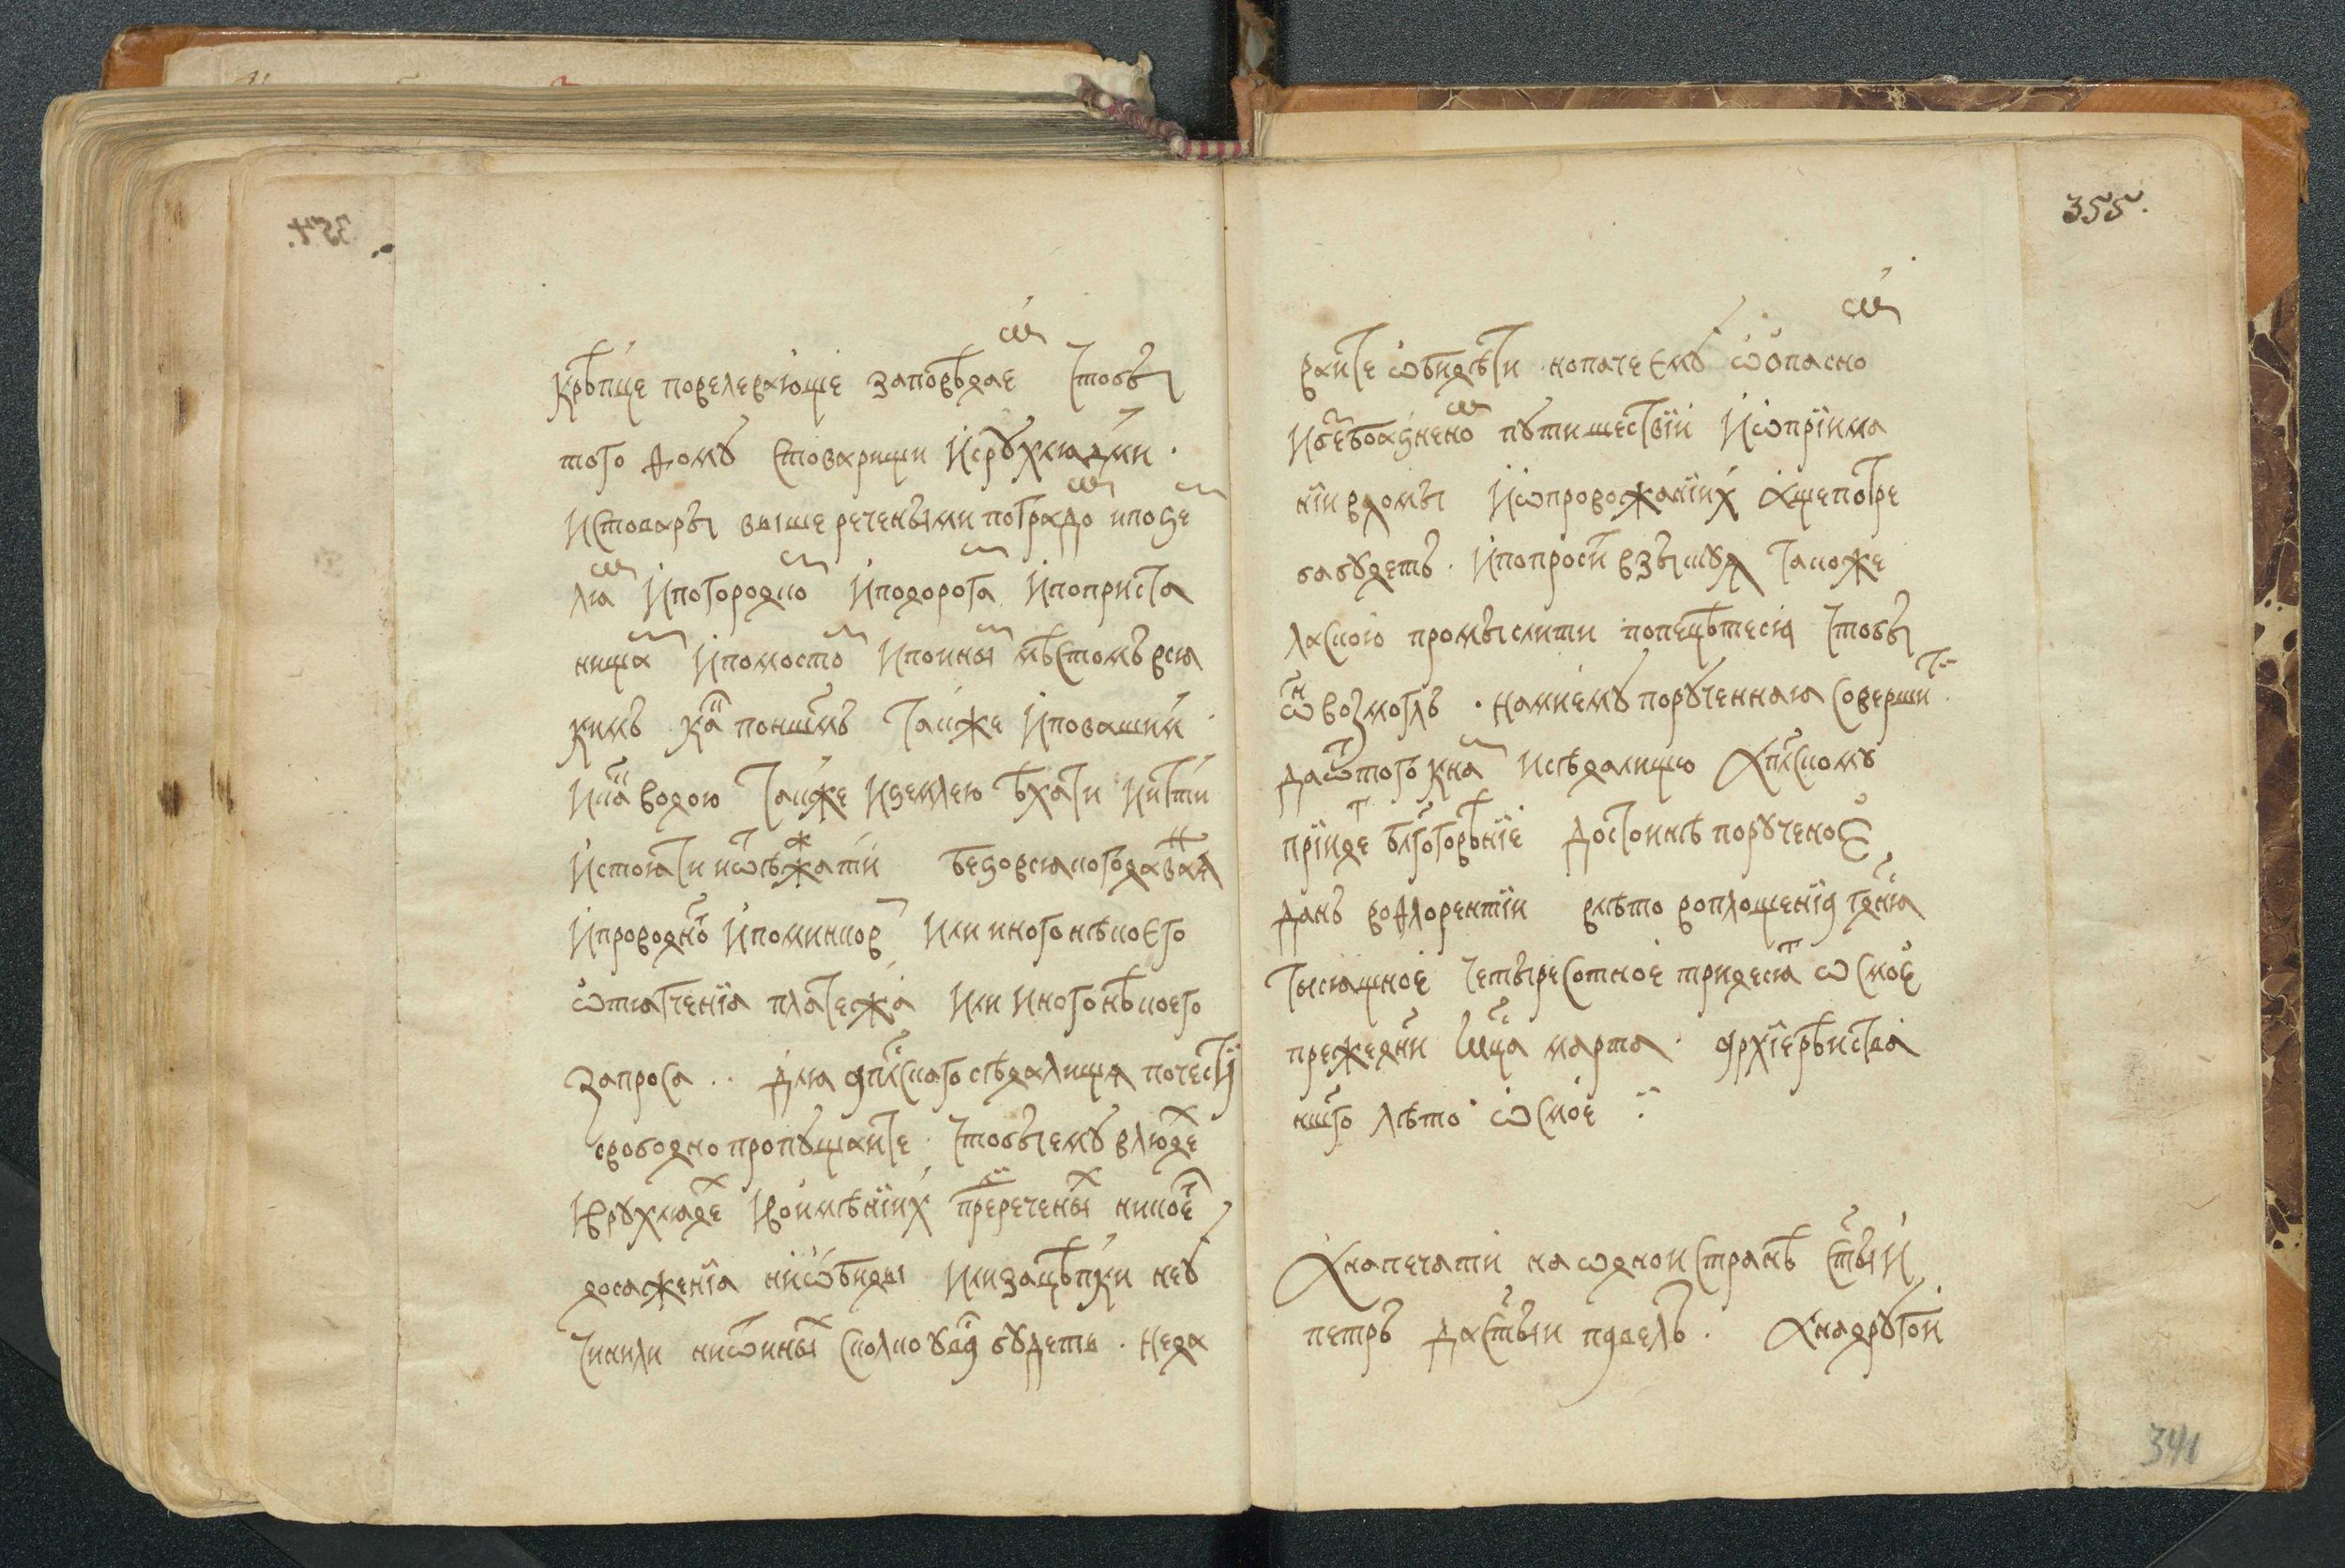 крѣпце повелевающе заповѣдаем чтобы
того дому с товарищи и с рухлядми .
и с товары выше речеными по градом и по зе
лям и по городком и по воротам и по приста
нищам и по мостом и по иным мѣстомъ вся
кимъ как по ншмъ также и по вашим .
и как водою также и землею ѣхати и ити
и стояти и ѿѣжжати безо всякого даваня
и проводного и поминков или иного нѣкоего
ѿтягчения платежа или иного нѣкоего
запроса . . для апⷭлского сѣдалища почести
свободно пропущаите . чтобы ему в людех
и в рухлядех и во имѣниих преречených никоег
досажения ни ѡбиды или зацѣпки не у
чинили ни ѿ иных сколко у вас будетъ . не да
355.
ваите ѡбидѣти но паче ему ѡ опасно
и о безбоязненом путишествии и ѡ приима
нии в домы и ѡ провожаниих аще потре
ба будетъ . и попросит в зычюд такоже
ласкою промыслити попецѣтеся чтобы
ѡн возмоглъ . нами ему порученная совершит
да ѿ того к нам и сѣдалищю апⷭлскому
прииде блгⷭотворѣние достоинѣ порученое
данъ во флорентии в лѣто воплощения гдня
тысящное четыресотное тридесят ѡсмое
прежедни мсца марта . архиерѣиства
ншго лѣто ѡсмое
А на печати на ѡднои странѣ стыи
петръ да стыи павелъ . А на другои
341